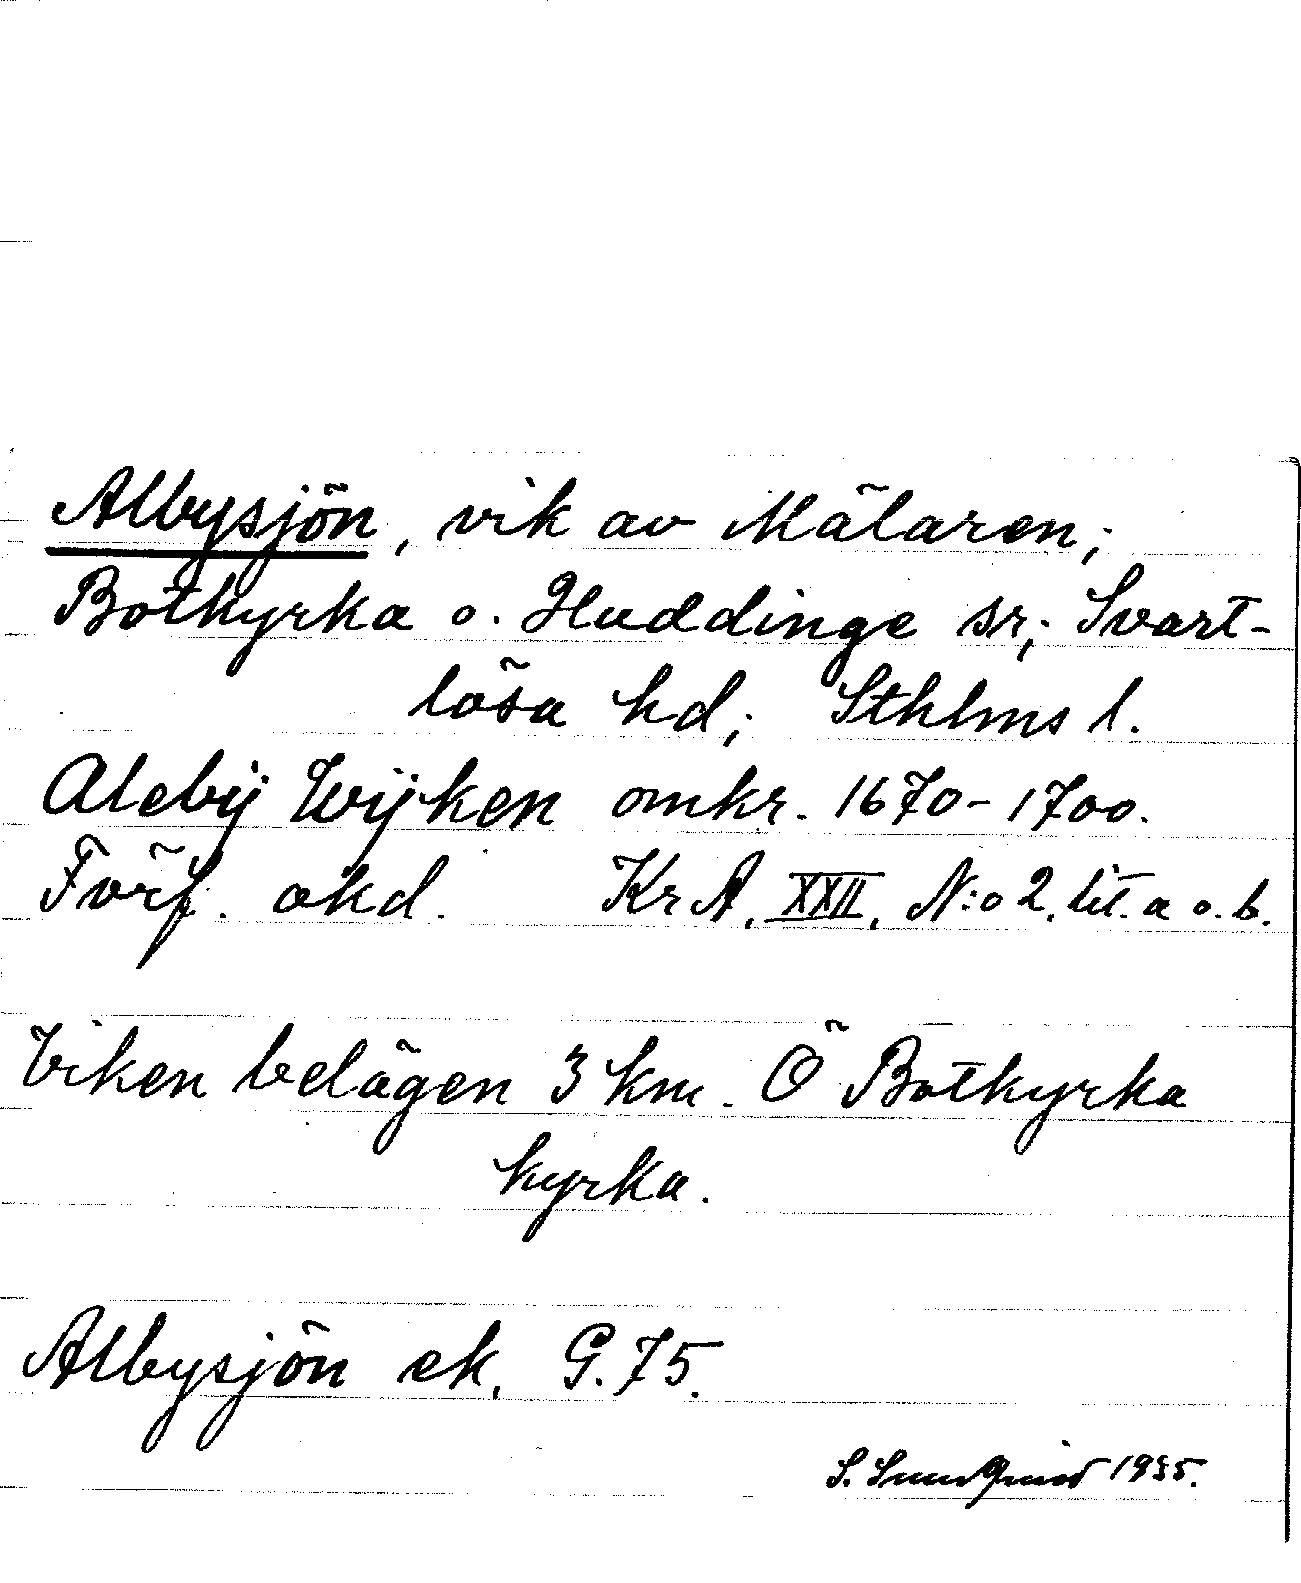 Albysjön, vik av Mälaren;
Botkyrka o. Huddinge sr; Svart-
lösa hd; Sthlms l.
Alebÿ Wÿken omkr. 1670-1700.
Förf. okd. KrA, XXII, N:o 2. lit. a o. b.
Viken belägen 3 km. Ö Botkyrka
kyrka.
Albysjön ek. G. 75.
S. Sundqvist 1935.